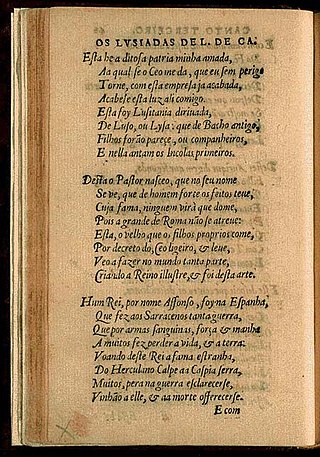 OS LVSIADAS DE L. DE CA.
Esta he a ditosa patria minha amada,
Aa qual se o Ceo me da, que eu sem perigo
Torne, com esta empresa ja acabada,
Acabese esta luz ali comigo.
Esta foy Lusitania diriuada,
De Luso, ou Lysa: que de Bacho antigo,
Filhos forão parece, ou companheiros,
E nella antam os Incolas primeiros.
Desta o Pastor nasceo, que no seu nome
Se ve, que de homem forte os feitos teue,
Cuja fama, ninguem virà que dome,
Pois a grande de Roma não se atreue:
Esta, o velho que os filhos proprios come,
Por decreto do Ceo ligeiro, & leue,
Veo a fazer no mundo tanta parte,
Criando a Reino illustre, & foi desta arte.
Hum Rei, por nome Affonso, foy na Espanha,
Que fez aos Sarracenos tanta guerra,
Que por armas sanguinas, força & manha
A muitos fez perder a vida, & a terra.
Voando deste Rei a fama estranha,
Do Herculano Calpe aa Caspia serra,
Muitos, pera na guerra esclarecerse,
Vinhão a elle, & aa morte offerecerse.
E com